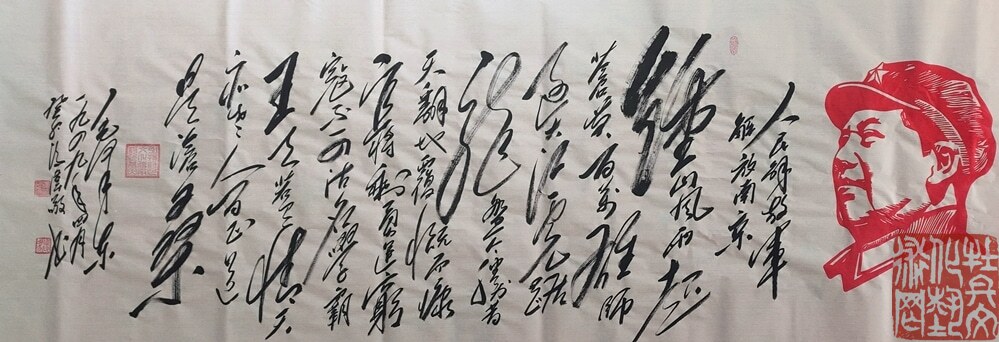 人民解放軍
解放南京
鍾山風雨起
蒼黄百万雄師
過大江虎踞
龍盤今勝昔
天翻地覆慨而慷
宜將剩勇追窮
寇不可沽名學霸
王天若有情天
亦老人間正道
是滄桑
毛澤東
一九四九年四月